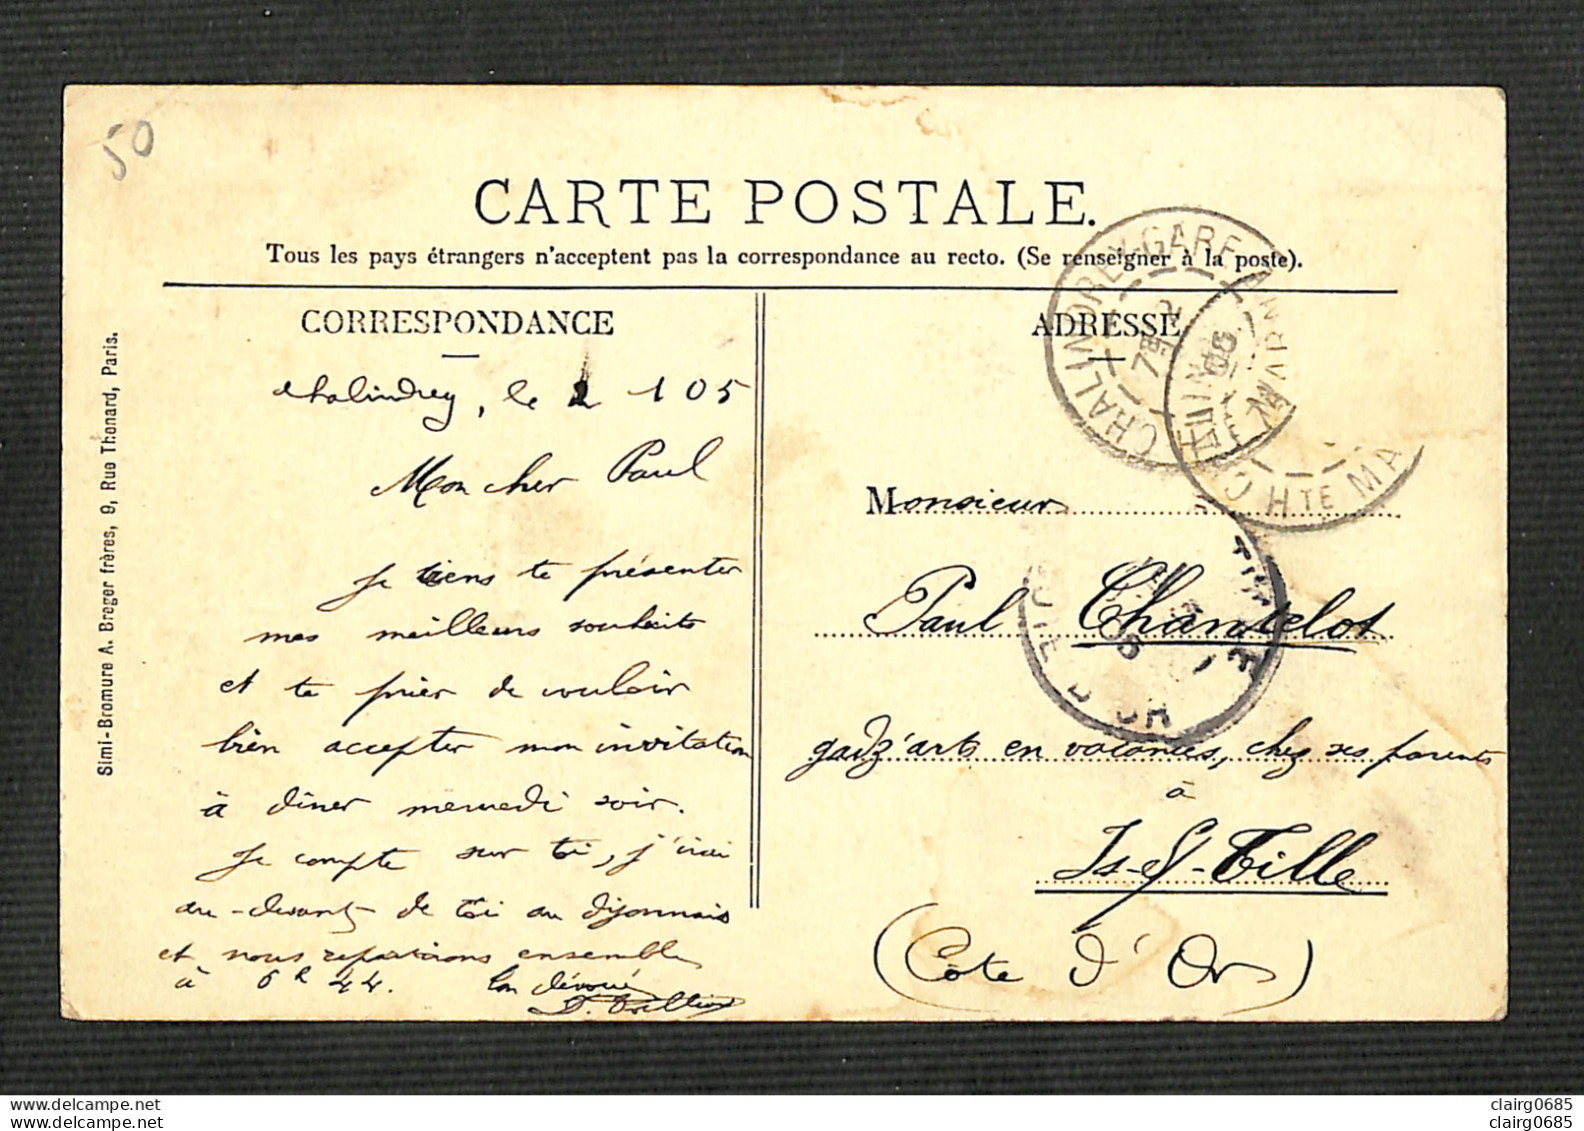 50
CARTE POSTALE.
Tous les pays étrangers n'acceptent pas la correspondance au recto. (Se renseigner à la poste).
CORRESPONDANCE
Chalindrey, le 2 1 05
Mon cher Paul
Je tiens te présenter
mes meilleurs souhaits
et te prier de vouloir
bien accepter mon invitation
à dîner mercredi soir.
Je compte sur toi, j'irai
au-devant de toi au dijonnais
et nous repartirons ensemble
à 6h 44. Ton dévoué
ADRESSE
Monsieur
Paul Chantelot
gadz'arts en vacances, chez ses parents
à
Is-s-Tille
(Côte d'Or)
CHALINDREY-GARE
HTE MA
Simi-Bromure A. Breger frères, 9, Rue Thenard, Paris.
www.delcampe.net
www.delcampe.net
clairg0685
clairg0685